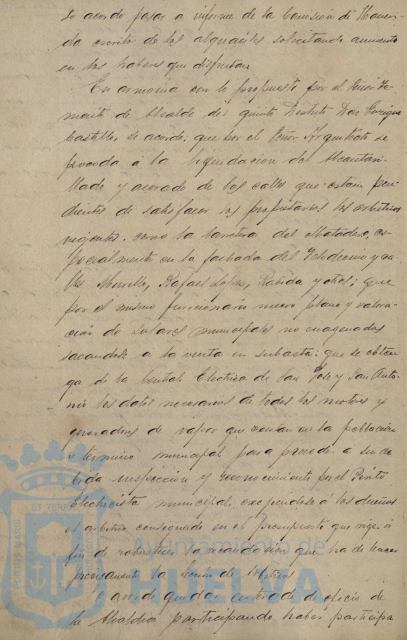 Se acordó pasar a informe de la Comisión de Hacien-
da escrito de los alguaciles solicitando aumento
en los haberes que disfrutan.
En armonia con lo propuesto por el Señor Te-
niente de Alcalde del quinto Distrito Don Enrique
Castilles se acordó: que por el Señor Arquitecto se
proceda á la liquidación del Alcantari-
llado y acerado de las calles que estan pen-
dientes de satisfacer sus propietarios los arbitrios
vigentes, como la barrera del Matadero, es-
pecialmente en la fachada del Velodromo y ca-
lles Murillo, Rafael López, Rabida y otras; que
por el mismo funcionario nuevo plano y valora-
ción de solares municipales no enagenados
sacandolo a la venta en subasta: que se obten-
ga de la Central Electrica de San José y San Anto-
nio los datos necesarios de todos los motores y
generadores de vapor que existan en la población
y término municipal para proceder a su de-
bida inspección y reconocimiento por el Perito
Electricista municipal, exigiendole á los dueños
el arbitrio consignado en el presupuesto que rige, á
fin de robustecer la recaudación que ha de hacer
precisamente la
Se acordó quedar enterado de oficio de
la Alcaldia participando haber participa
Ayuntamiento de
HUELVA